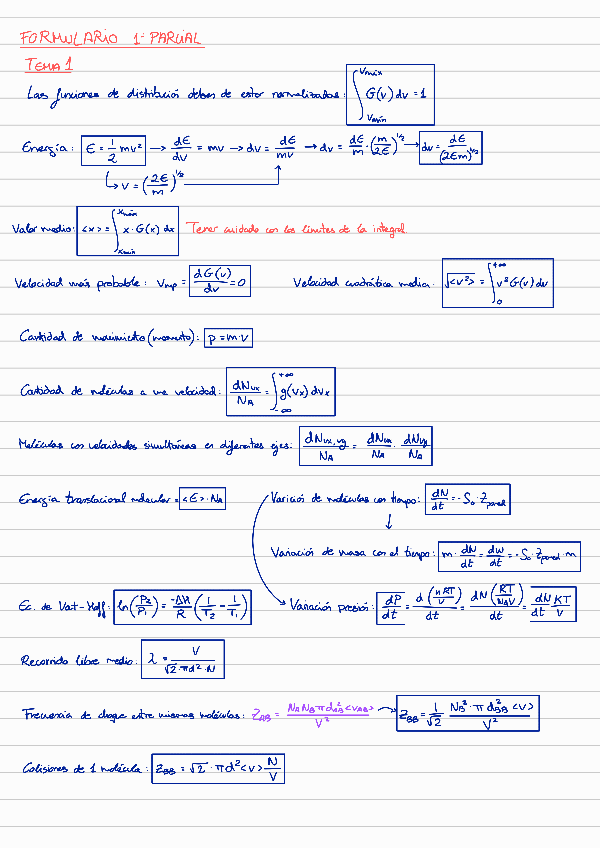 FORMULARIO 1er PARCIAL
TEMA 1
Las funciones de distribución deben de estar normalizadas: ∫_{Vmín}^{Vmáx} G(v) dv = 1
Energía: E = 1/2 mv² → dE/dv = mv → dv = dE/mv → dv = dE/m · (m/2E)^{1/2} → dv = dE/(2Em)^{1/2}
↳ v = (2E/m)^{1/2}
Valor medio: <x> = ∫_{xmín}^{xmáx} x · G(x) dx Tener cuidado con los límites de la integral
Velocidad más probable: Vmp = dG(v)/dv = 0 Velocidad cuadrática media: √<v²> = ∫_0^{+∞} v² G(v) dv
Cantidad de movimiento (momento): p = m·v
Cantidad de moléculas a una velocidad: dN_{vx}/N_A = ∫_{-∞}^{+∞} g(vx) dvx
Moléculas con velocidades simultáneas en diferentes ejes: dN_{vx,vy}/N_A = dN_{vx}/N_A · dN_{vy}/N_A
Energía translacional molecular = <E> · N_A Varición de moléculas con tiempo: dN/dt = - S₀ · Z_{pared}
Variación de masa con el tiempo: m · dN/dt = dw/dt = - S₀ · Z_{pared} · m
Ec. de Vant-Hoff: ln(P₂/P₁) = -ΔH/R (1/T₂ - 1/T₁) Variación presión: dP/dt = d(nRT/V)/dt = dN(RT/N_AV)/dt = dN/dt KT/V
Recorrido libre medio: λ = V/√2·πd²·N
Frecuencia de choque entre mismas moléculas: Z_{AB} = N_A N_B π d²_{AB} <v_{AB}>/V² → Z_{BB} = 1/√2 N_B² · π d²_{BB} <v>/V²
Colisiones de 1 molécula: Z_{BB} = √2 · πd² <v> N/V